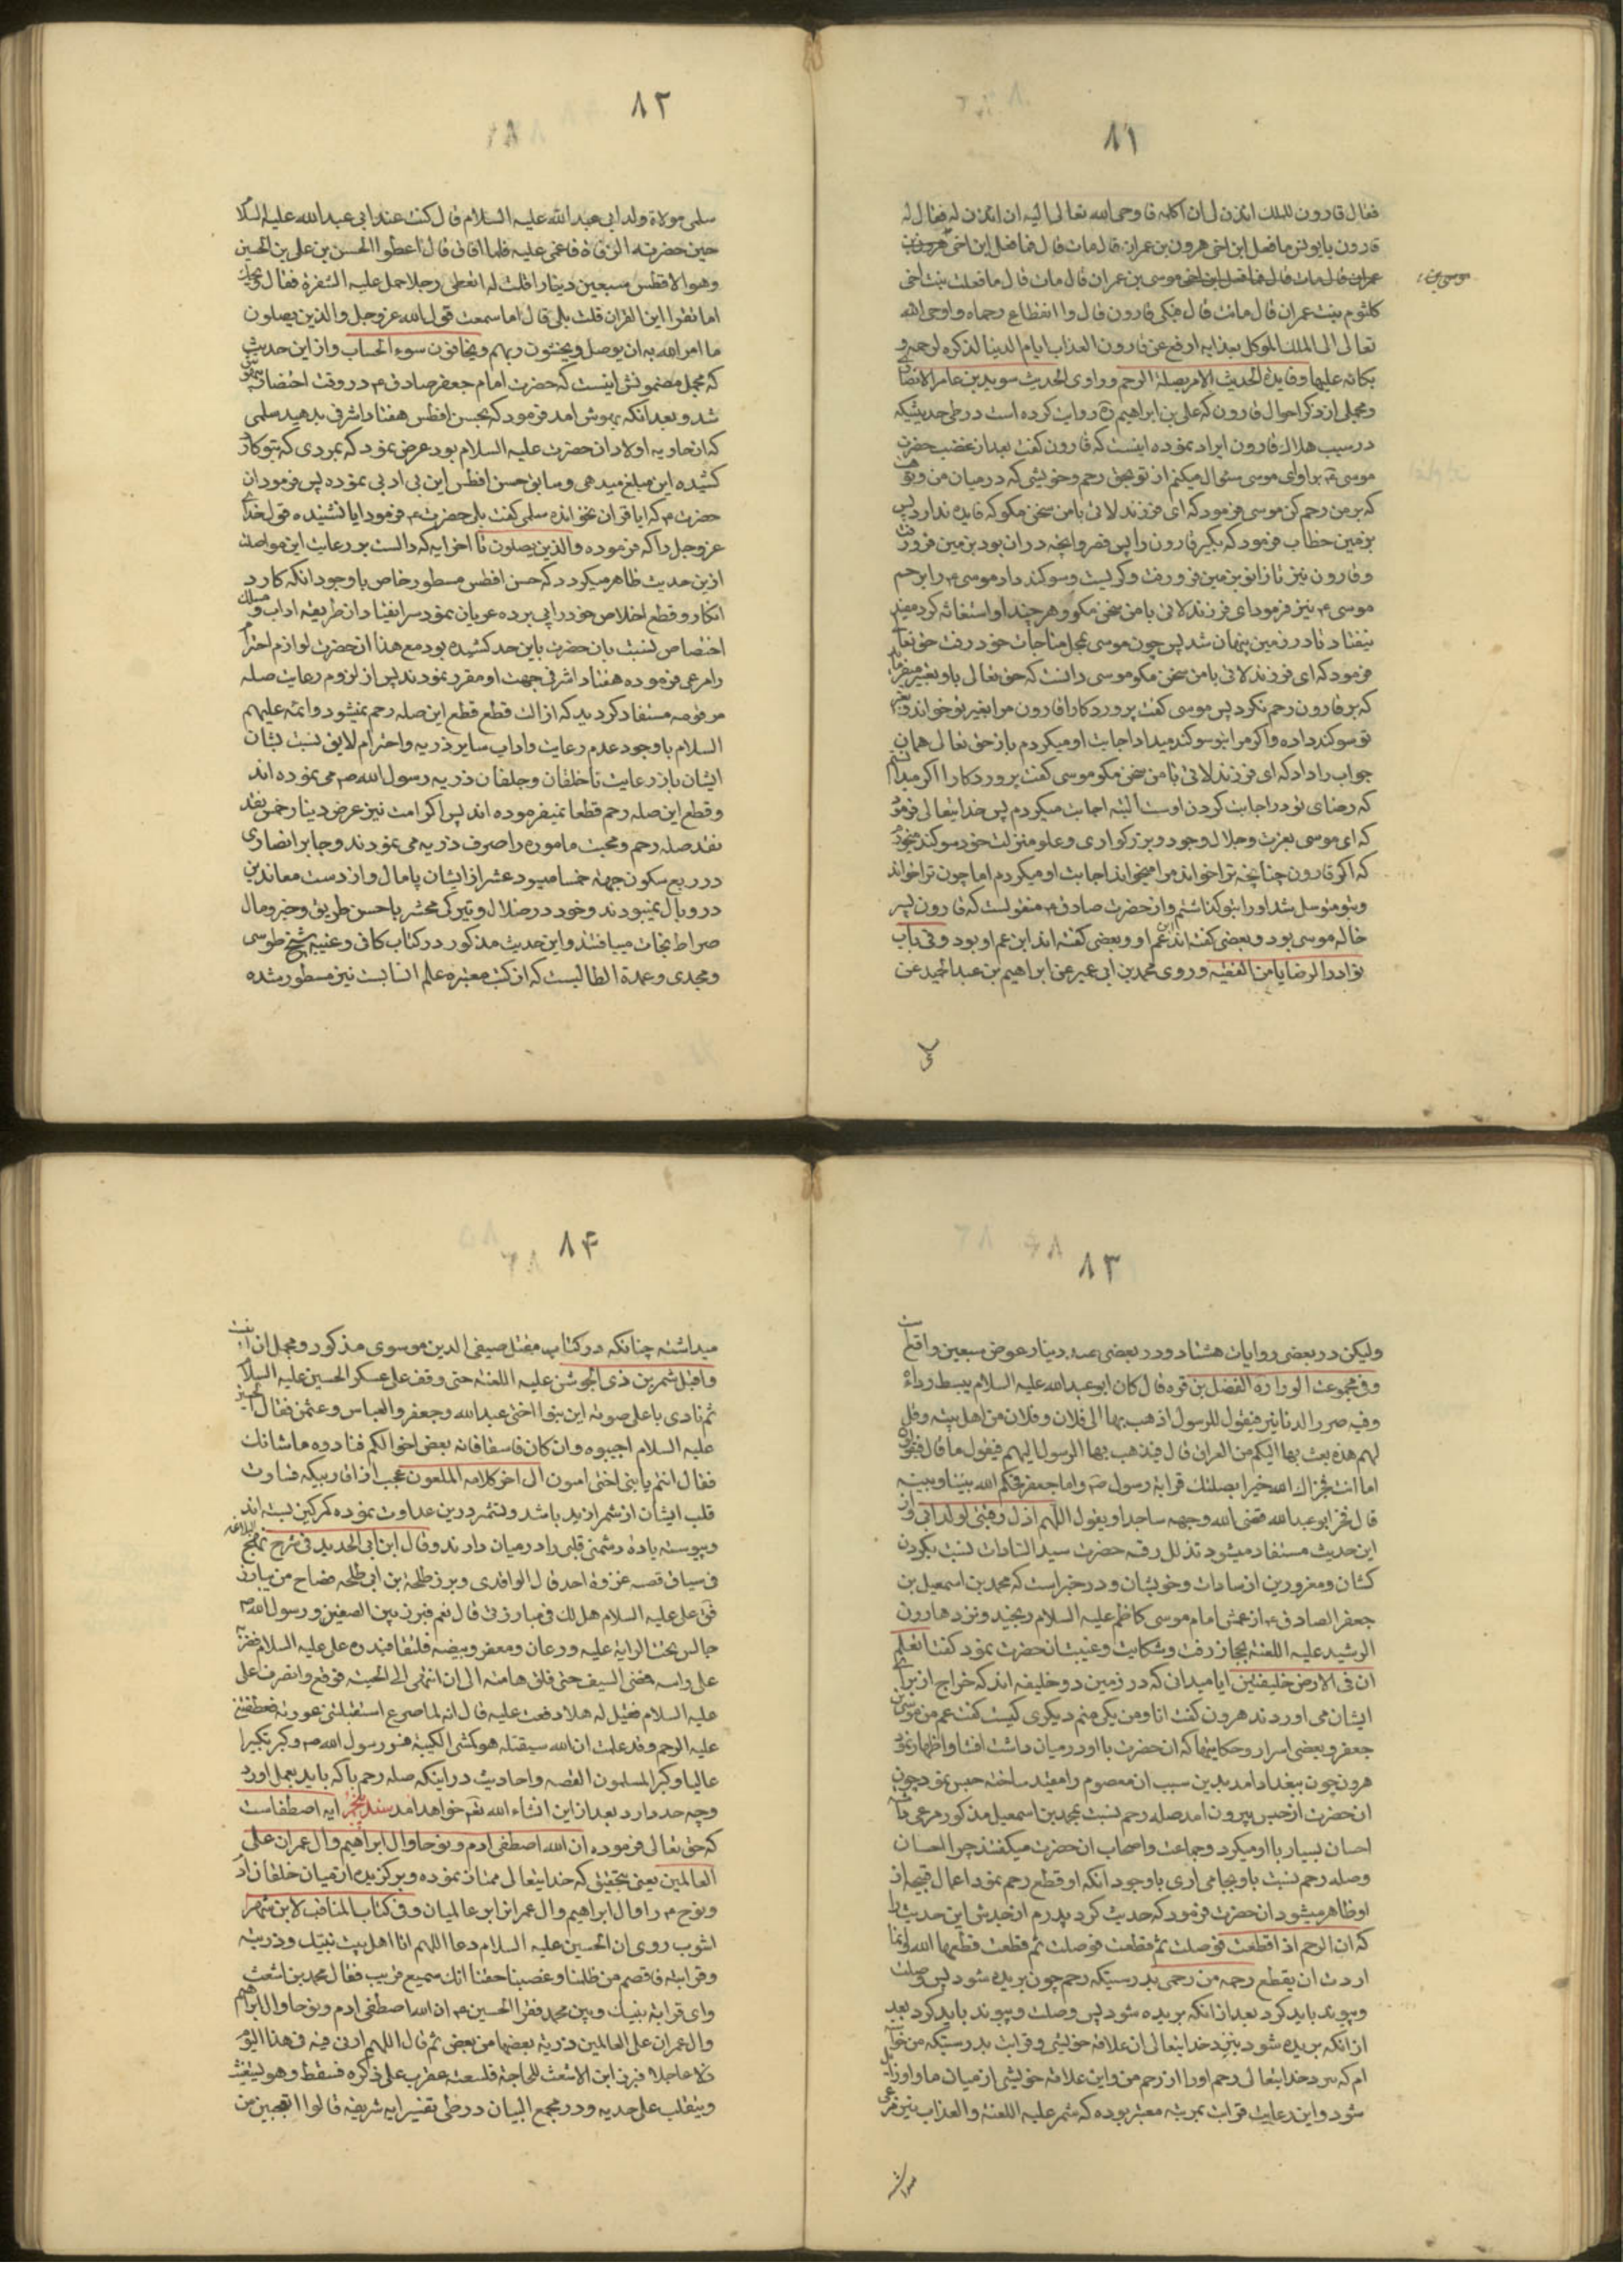 ۸۱
فقال قارون للملك ائذن لی ان اکلمه فاوحی الله تعالی الیه ان ائذن له فقال له
قارون یا یونس ما فعل ابن اخی هرون بن عمران قال مات قال فما فعل ابن اخی
عمران قال مات قال فما فعل ابن اخی موسی بن عمران قال مات قال ما فعلت بنت اخی
کلثوم بنت عمران قال ماتت قال فبکی قارون قال وا انقطاع رحماه و اوحی الله
تعالی الی الملك الموکل بعذابه ارفع عن قارون العذاب ایام الدنیا لذکره لرحمه و
بکائه علیها و فایدة الحدیث الامر بصلة الرحم و راوی الحدیث سوید بن عامر الانصاری
و مجملی از ذکر احوال قارون که علی بن ابراهیم ره روایت کرده است در طی حدیثیکه
در سبب هلاك قارون ایراد نموده اینست که قارون گفت بعد از غضب حضرت
موسی ع بر او ای موسی سئوال میکنم از تو بحق رحم و خویشی که در میان من و تو
که بر من رحم کن موسی فرمود که ای فرزند لاوی با من سخن مکو که فایده ندارد پس
بزمین خطاب فرمود که بگیر قارون را پس قصر و انچه در ان بود بزمین فرو رفت
و قارون نیز تا زانو بزمین فرو رفت و گریست و سوکند داد موسی ع را برحم
موسی ع نیز فرمود ای فرزند لاوی با من سخن مکو و هر چند او استغاثه کرد مفید
نیفتاد تا در زمین پنهان شد پس چون موسی بمحل مناجات خود رفت حق تعالی
فرمود که ای فرزند لاوی با من سخن مکو موسی دانست که حق تعالی باو تعییر میفرماید
که بر قارون رحم نکرد پس موسی گفت پروردکارا قارون مرا بغیر تو خواند و بغیر
تو سوکند داده و اکر مرا بتو سوکند میداد اجابت او میکردم باز حق تعالی همان
جواب را داد که ای فرزند لاوی با من سخن مکو موسی گفت پروردکارا اکر میدانستم
که رضای تو در اجابت کردن اوست البته اجابت میکردم پس خدایتعالی فرمود
که ای موسی بعزت و جلال و جود و بزرکواری و علو منزلت خود سوکند میخورم
که اکر قارون چنانچه ترا خواند مرا میخواند اجابت او میکردم اما چون ترا خواند
و بتو متوسل شد او را بتو کذاشتم و از حضرت صادق ع منقولست که قارون پسر
خاله موسی بود و بعضی گفته اند عم او و بعضی گفته اند ابن عم او بود و فی باب
نوادر الوصایا من الفقیه و روی محمد بن ابی عمیر عن ابراهیم بن عبد الحمید عن
۸۲
سلمی مولاة ولد ابی عبد الله علیه السلام قال کنت عند ابی عبد الله علیه السلام
حین حضرته الوفاة فاغمی علیه فلما افاق قال اعطوا الحسن بن علی بن الحسین
و هو الافطس سبعین دینارا قلت له اتعطی رجلا حمل علیه الشفرة فقال ویحك
اما تقرأ این القران قلت بلی قال اما سمعت قول الله عز و جل و الذین یصلون
ما امر الله به ان یوصل و یخشون ربهم و یخافون سوء الحساب و از این حدیث
که مجمل مضمونش اینست که حضرت امام جعفر صادق ع در وقت احتضار بیهوش
شد و بعد انکه بهوش امد فرمود که بحسن افطس هفتاد اشرفی بدهید سلمی
که از جاریه اولاد ان حضرت علیه السلام بود عرض نمود که بمردی که بتو کارد
کشیده این مبلغ میدهی و سابق حسن افطس این بی ادبی نموده پس فرمود ان
حضرت ع که ایا قران نخوانده سلمی گفت بلی حضرت ع فرمود ایا نشنیده قول خدای
عز و جل را که فرموده و الذین یصلون تا اخر ایه که دالست بر رعایت این مواصلت
از ین حدیث ظاهر میکردد که حسن افطس مسطور خاص با وجود انکه کارد
انکار و قطع اخلاص خود را پی برده عریان نمود سر انقیاد از طریقه اداب و مسلك
اختصاص نسبت بان حضرت باین حد کشیده بود مع هذا ان حضرت لوازم احترام
را مرعی فرموده هفتاد اشرفی جهت او مقرر نمودند پس از لزوم رعایت صله
مرقومه مستفاد کردید که از ان قطع قطع این صله رحم نمیشود و ائمه علیهم
السلام با وجود عدم رعایت و اداب سایر ذریه و احترام لایق نسبت بشان
ایشان باز رعایت ناخلفان و جلفان ذریه رسول الله ص می نموده اند
و قطع این صله رحم قطعا نمیفرموده اند پس اکر امت نیز عرض دینار خمس نقد
نقد صله رحم و محبت ماموره را صرف ذریه می نمودند و جابر انصاری
در ربع سکون جهة خمسا میبود عشر از ایشان پامال و از دست معاندین
در وبال نمیبودند و خود در ضلال و تیرکی محشر باحسن طریق و خیر و مال
صراط نجات مییافتند و این حدیث مذکور در کتاب کافی و غیبه شیخ طوسی
و مجدی و عمدة الطالبست که از کتب معتبره علم انسابست نیز مسطور شده
۸۳
ولیکن در بعضی روایات هشتاد و در بعضی صد دینار عوض سبعین واقع است
و فی مجموعة الورارة الفضل بن قره قال کان ابو عبد الله علیه السلام یبسط رداءه
و فیه صرر الدنانیر فیقول للرسول اذهب بها الی فلان و فلان من اهل بیته و قل
لهم هذه بعث بها الیکم من العراق قال فیذهب بها الرسول الیهم فیقول ما قال فیقولون
اما انت فجزاك الله خیرا بصلتك قرابة رسول ص و اما جعفر فحکم الله بیننا و بینه
قال فخر ابو عبد الله فقنی الله وجهه ساجدا و یقول اللهم اذل رقبتی لولد ابی و از
این حدیث مستفاد میشود تذلل رقبه حضرت سید السادات نسبت بکردن
کشان و مغرورین از سادات و خویشان و در خبر است که محمد بن اسمعیل بن
جعفر الصادق ع از عمش امام موسی کاظم علیه السلام رنجید و نزد هارون
الرشید علیه اللعنه بحجاز رفت و شکایت و غیبت ان حضرت نمود گفت اتعلم
ان فی الارض خلیفتین ایا میدان که در زمین دو خلیفه اند که خراج از برای
ایشان می اورند هرون گفت انا و من یکی منم دیکری کیست گفت عم من موسی بن
جعفر و بعضی اسرار و حکایتها که ان حضرت با او در میان داشت افشا و اظهار نمود
هرون چون ببغداد امد بدین سبب ان معصوم را مقید ساخته حبس نمود چون
ان حضرت از حبس بیرون امد صله رحم نسبت بمحمد بن اسمعیل مذکور مرعی داشته
احسان بسیار با او میکرد و جماعت و اصحاب ان حضرت میگفتند چرا احسان
و صله رحم نسبت باو بجا می اری با وجود انکه او قطع رحم نمود اعمال قبیحه از
او ظاهر میشود ان حضرت فرمود که حدیث کرد پدرم از جدش این حدیث را
که ان الرحم اذا قطعت فوصلت ثم قطعت فوصلت ثم قطعت قطعها الله و انما
اردت ان یقطع رحمه من رحمی بدرستیکه رحم چون بریده شود پس وصلت
و پیوند باید کرد بعد از انکه بریده شود پس وصلت و پیوند باید کرد بعد
از انکه بریده شود ببرد خدایتعالی ان علاقه خویشی و قرابت بدرستیکه من خواسته
ام که ببرد خدایتعالی رحم او را از رحم من و این علاقه خویشی از میان ما و او زایل
شود و این رعایت قرابت بمرتبه معتبر بوده که شمر علیه اللعنة و العذاب نیز مرعی
۸۴
میداشته چنانکه در کتاب مقتل صیفی الدین موسوی مذکور و مجمل ان
و اقبل شمر بن ذی الجوشن علیه اللعنه حتی وقف علی عسکر الحسین علیه السلام
ثم نادی باعلی صوته این بنو اختی عبد الله و جعفر و العباس و عثمن فقال الحسین
علیه السلام اجیبوه و ان کان فاسقا فانه بعض اخوالکم فنادوه ما شانك
فقال انتم یا بنی اختی امنون الی اخر کلامه الملعون عجب از اقاربیکه قساوت
قلب ایشان از شمر ازید باشد و بتمرد رین عداوت نموده کمر کین بسته اند
و پیوسته باده دشمنی قلبی را در میان دارند و قال ابن ابی الحدید فی شرح نهج البلاغه
فی سیاق قصه غزوة احد قال الواقدی و برز طلحة بن ابی طلحه فصاح من یبارز
فق علی علیه السلام هل لك فی مبارزتی قال نعم فبرز بین الصفین و رسول الله ص
جالس تحت الرایة علیه درعان و مغفر و بیضه فلتقیا فبدره علی علیه السلام فضربه
علی راسه فمضی السیف حتی فلق هامته الی ان انتهی الی لحیته فوقع و انصرف علی
علیه السلام فقیل له هلا دففت علیه قال انه لما صرع استقبلتنی عورته فعطفتنی
علیه الرحم و قد علمت ان الله سیقتله هو کبش الکتیبة فسر رسول الله ص و کبر تکبیرا
عالیا و کبر المسلمون القصه و احادیث در اینکه صله رحم با که باید بعمل اورد
و چه حد دارد بعد از این انشاء الله تعم خواهد امد سند پنجم ایه اصطفاست
که حق تعالی فرموده ان الله اصطفی ادم و نوحا و ال ابراهیم و ال عمران علی
العالمین یعنی بتحقیق که خدایتعالی ممتاز نموده و برکزیده از میان خلقان ادم
و نوح ع را و ال ابراهیم و ال عمران بر عالمیان و فی کتاب المناقب لابن شهر
اشوب روی ان الحسین علیه السلام دعا اللهم انا اهل بیت نبیك و ذریته
و قرابته فاقصم من ظلمنا و غصبنا حقنا انك سمیع قریب فقال محمد بن اشعث
و ای قرابة بینك و بین محمد فقرا الحسین ع ان الله اصطفی ادم و نوحا و ال ابراهیم
و ال عمران علی العالمین ذریة بعضها من بعض ثم قال اللهم ارنی فیه فی هذا الیوم
ذلا عاجلا فبرز ابن الاشعث للحاجة فلسعته عقرب علی ذکره فسقط و هو یستغیث
و یتقلب علی حدثه و در مجمع البیان در طی تفسیر ایه شریفه قالوا اتعجبین من